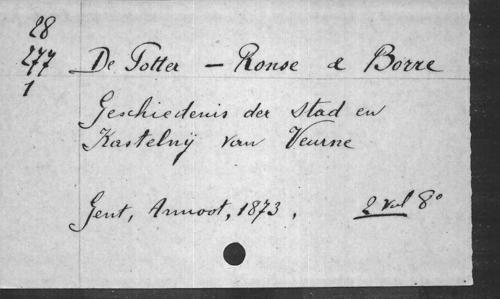 28
277
1
De Potter – Ronse & Borre
Geschiedenis der stad en
Kastelnij van Veurne
Gent, Annoot, 1873, 2 vol 8°